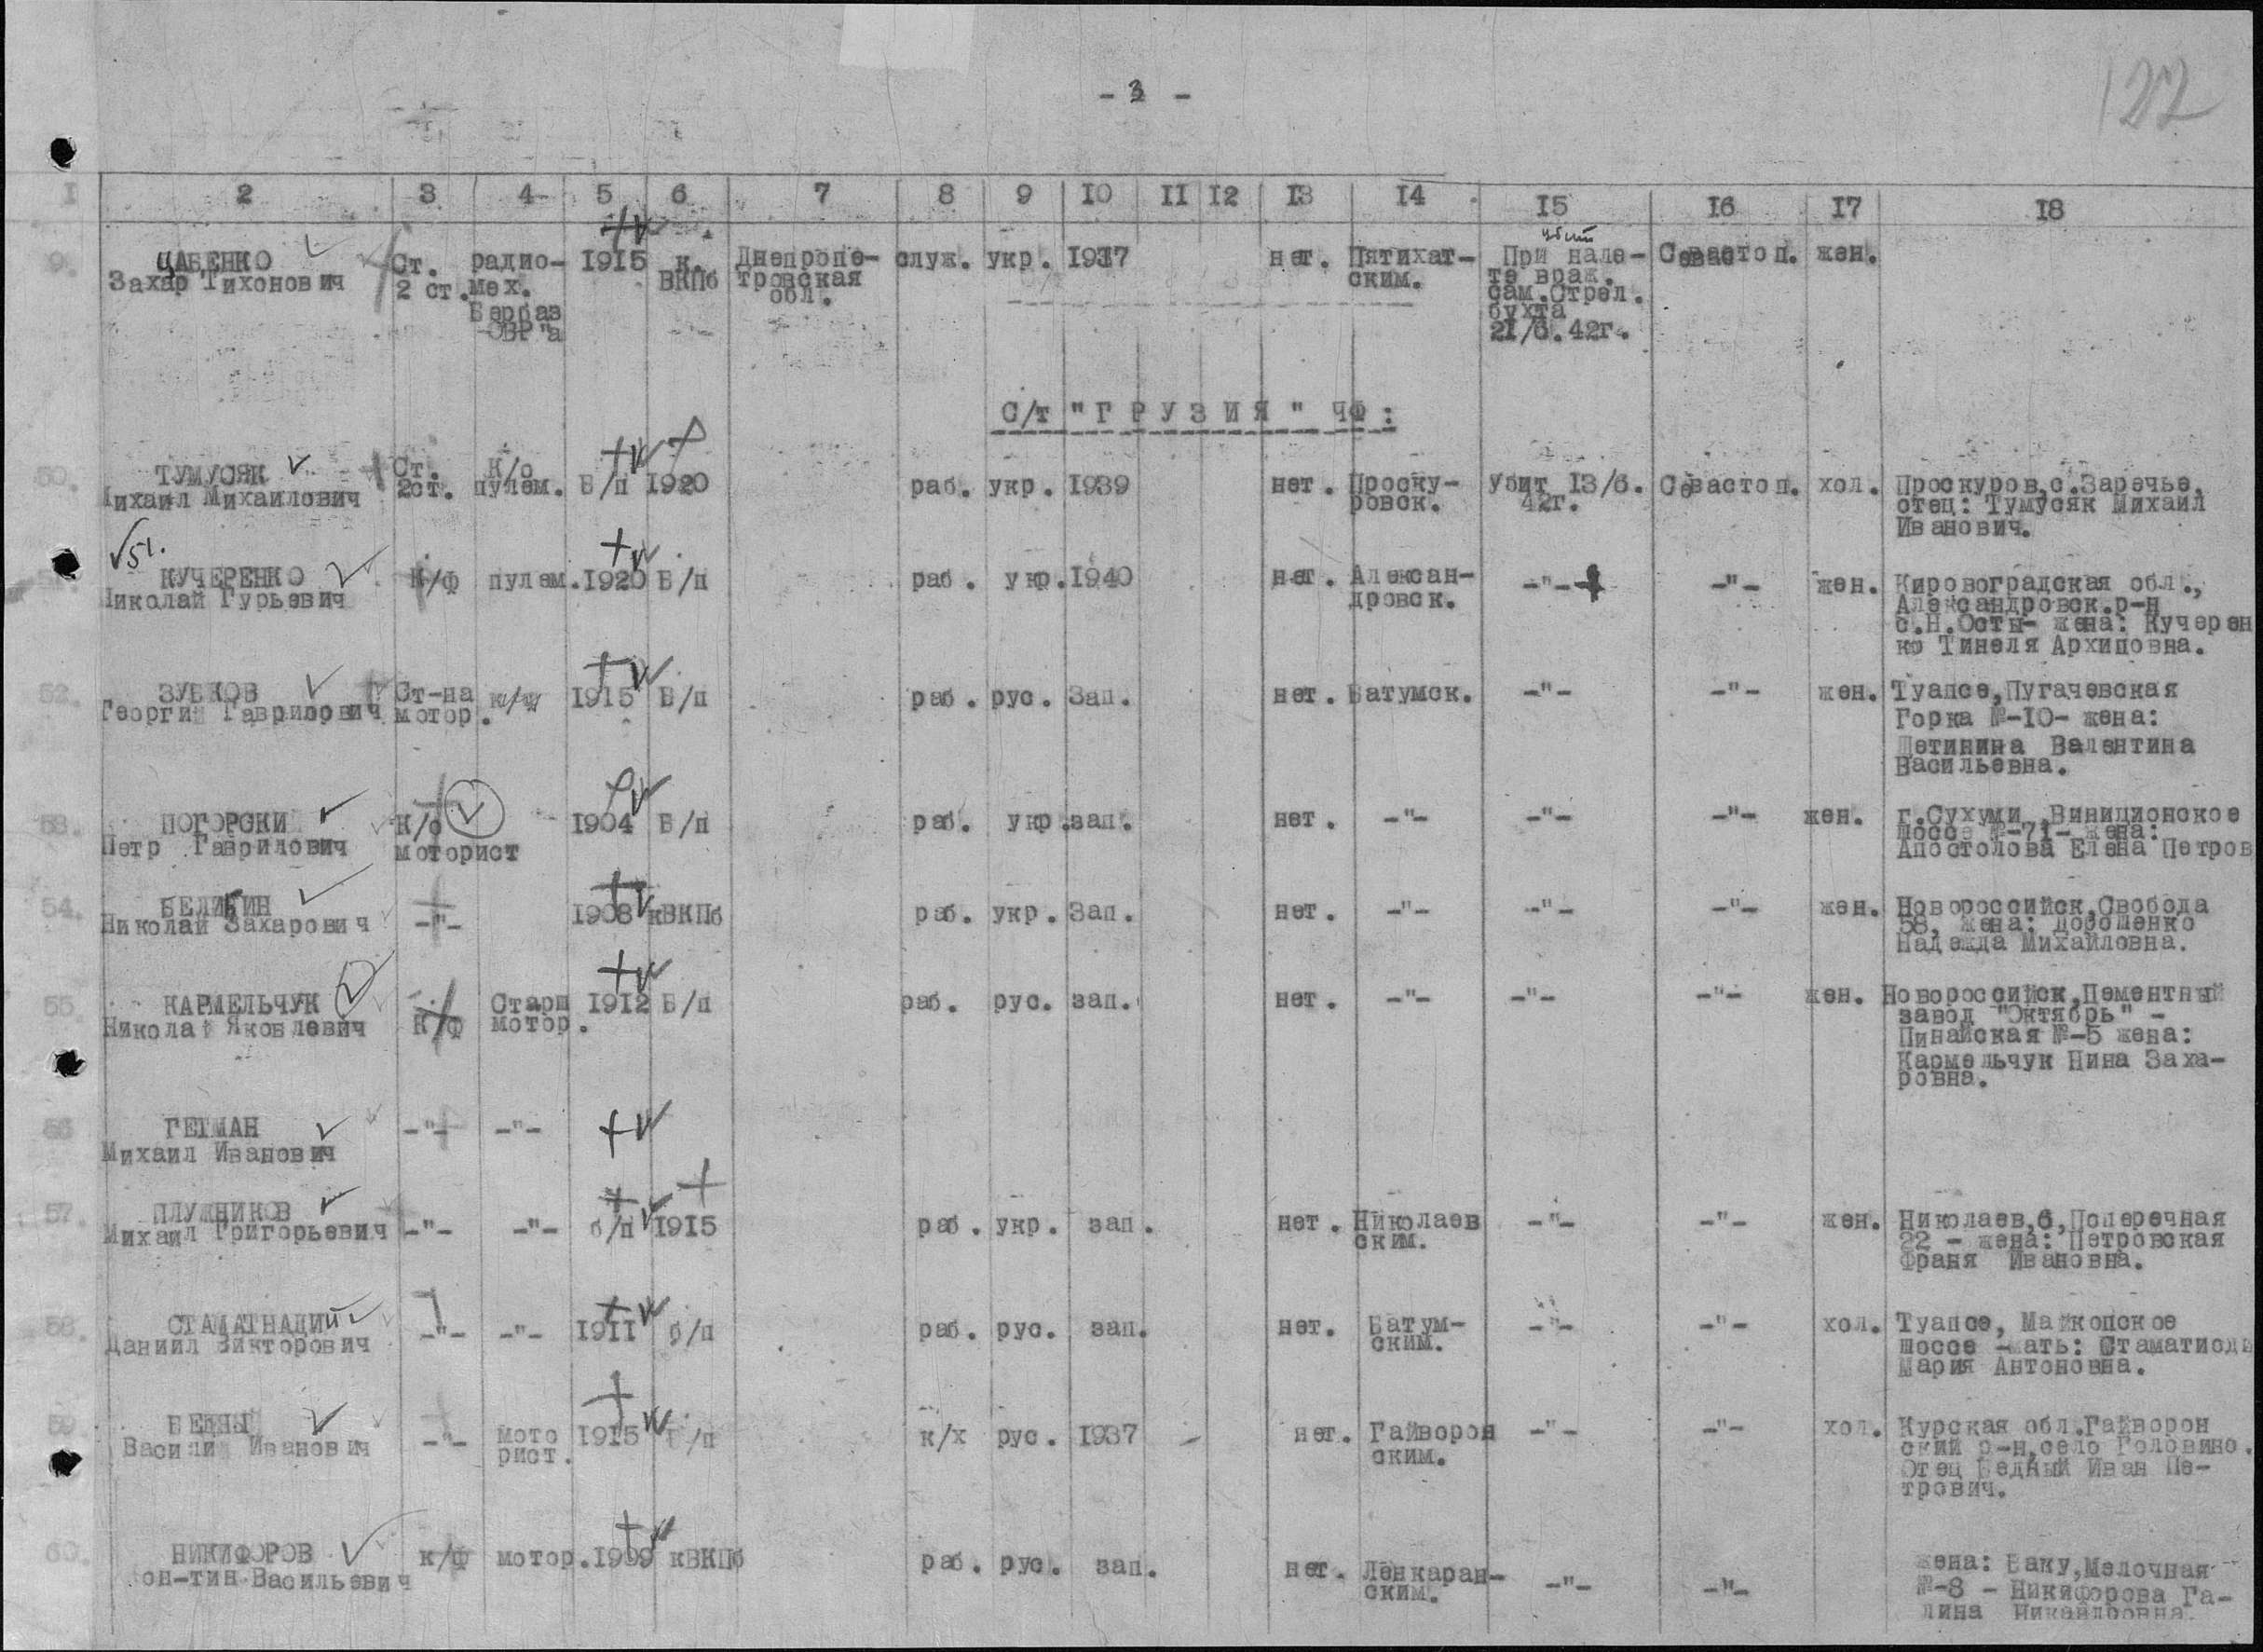 - 3 -
122
I 2 3 4 5 6 7 8 9 10 II 12 13 14 15 16 17 18
9. ЦАБЕНКО Захар Тихонович
Ст. 2 ст.
радио-мех. Бербаз ОВР"а
1915
к. ВКПб
Днепропе-
тровская
обл.
служ. укр. 1937 нет.
Пятихат-
ским.
убит
При нале-
те враж.
сам.Стрел.
бухта
21/6.42г.
Севастоп. жен.
С/т "ГРУЗИЯ" ЧФ:
50. ТУМУСЯК
Михаил Михаилович
Ст.
2ст.
К/о
пулем. Б/п 1920 раб. укр. 1939 нет.
Проску-
ровск.
Убит 13/6.
42г.
Севастоп. хол.
Проскуров,с.Заречье,
отец: Тумусяк Михаил
Иванович.
51.
КУЧЕРЕНКО
Николай Гурьевич
К/ф пулем. 1920 Б/п раб. укр. 1940 нет.
Алексан-
дровск.
-"- -"- жен.
Кировоградская обл.,
Александровск.р-н
с.Н.Осты- жена: Кучерен
ко Тинеля Архиповна.
52. ЗУБКОВ
Георгий Гаврилович
Ст-на
мотор.
1915 Б/п раб. рус. Зап. нет. Батумск. -"- -"- жен.
Туапсе,Пугачевская
Горка №-10- жена:
Щетинина Валентина
Васильевна.
53. ПОГОРСКИ
Петр Гаврилович
К/ф
моторист
1904 Б/п раб. укр. зап. нет. -"- -"- -"- жен.
г.Сухуми,Виниционское
шоссе №-71- жена:
Апостолова Елена Петров
54. БЕЛИБИН
Николай Захарович
-"- 1908 кВКПб раб. укр. Зап. нет. -"- -"- -"- жен.
Новороссийск,Свобода
58, жена: Дорошенко
Надежда Михайловна.
55. КАРМЕЛЬЧУК
Николай Яковлевич
К/ф
Старш
мотор.
1912 Б/п раб. рус. зап. нет. -"- -"- -"- жен.
Новороссийск,Цементный
завод "Октябрь" -
Пинайская №-5 жена:
Кармельчук Нина Заха-
ровна.
56 ГЕТМАН
Михаил Иванович
-"- -"-
57. ПЛУЖНИКОВ
Михаил Григорьевич
-"- -"- б/п 1915 раб. укр. зап. нет.
Николаев
ским.
-"- -"- жен.
Николаев,6,Поперечная
22 - жена: Петровская
Франя Ивановна.
58. СТАМАТНАДИЙ
Даниил Викторович
-"- -"- 1911 б/п раб. рус. зап. нет.
Батум-
ским.
-"- -"- хол.
Туапсе, Майкопское
шоссе -мать: Стаматиоди
Мария Антоновна.
59. БЕДНЫЙ
Василий Иванович
-"-
мото
рист.
1915 Б/п к/х рус. 1937 - нет.
Гайворон
ским.
-"- -"- хол.
Курская обл.Гайворон
ский р-н,село Головино.
Отец Бедный Иван Пе-
трович.
60. НИКИФОРОВ
он-тин Васильевич
к/ф мотор. 1909 кВКПб раб. рус. зап. нет.
Ленкаран-
ским.
-"- -"-
жена: Баку,Мелочная
№-8 - Никифорова Га-
лина Никандровна.